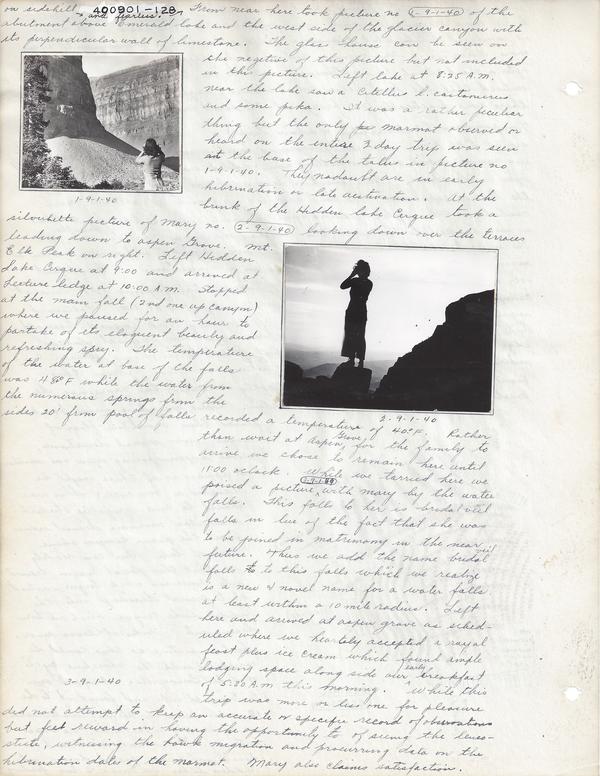 on sidehill and fearless. 400901-128 From near here took picture no 1-9-1-40 of the
abutment above Emerald lake and the west side of the glacier canyon with
its perpendicular wall of limestone. The glass house can be seen on
the negetive of this picture but not included
in this picture. Left lake at 8:25 A.M.
near the lake saw a Citellus l. castanurus
and some pika. It was a rather peculiar
thing but the only marmot observed or
heard on the entire 2 day trip was seen
at the base of the talus in picture no
1-9-1-40. They nodoubt are in early
hibernation or late aestivation. At the
1-9-1-40
brink of the Hidden lake Cirque took a
silvouhette picture of Mary no. 2-9-1-40 looking down over the terraces
leading down to aspen Grove. Mt.
Elk Peak on right. Left Hidden
Lake Cirque at 9:00 and arrived at
Lecture ledge at 10:00 A.M. Stopped
at the main fall (2nd one up canyon)
where we paused for an hour to
partake of its eloquent beauty and
refreshing spray. The temperature
of the water at base of the falls
was 48°F while the water from
the numerous springs from the
2-9-1-40
sides 20' from pool of falls recorded a temperature of 40°F. Rather
than wait at aspen Grove, for the family to
arrive we chose to remain here until
11:00 oclock. While we tarried here we
3-9-1-40
poised a picture with mary by the water
falls. This falls to her is bridal veil
falls in lue of the fact that she was
to be joined in matrimony in the near
future. Thus we add the name bridal veil
falls to this falls which we realize
is a new & novel name for a water falls
at least within a 10 mile radius. Left
here and arrived at aspen grove as sched-
uled where we heartily accepted a royal
feast plus ice cream which found ample
lodging space along side our early breakfast
of 5:30 A.M this morning. While this
3-9-1-40
trip was more or less one for pleasure
did not attempt to keep an accurate or specific record of observations
but feel reward in having the opportunity to of seeing the leuco-
sticte, witnessing the hawk migration and procurring data on the
hibernation dates of the marmot. Mary also claims satisfaction.